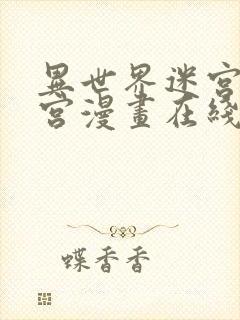 異世界迷宮
宮漫畫在綫
蝶香香